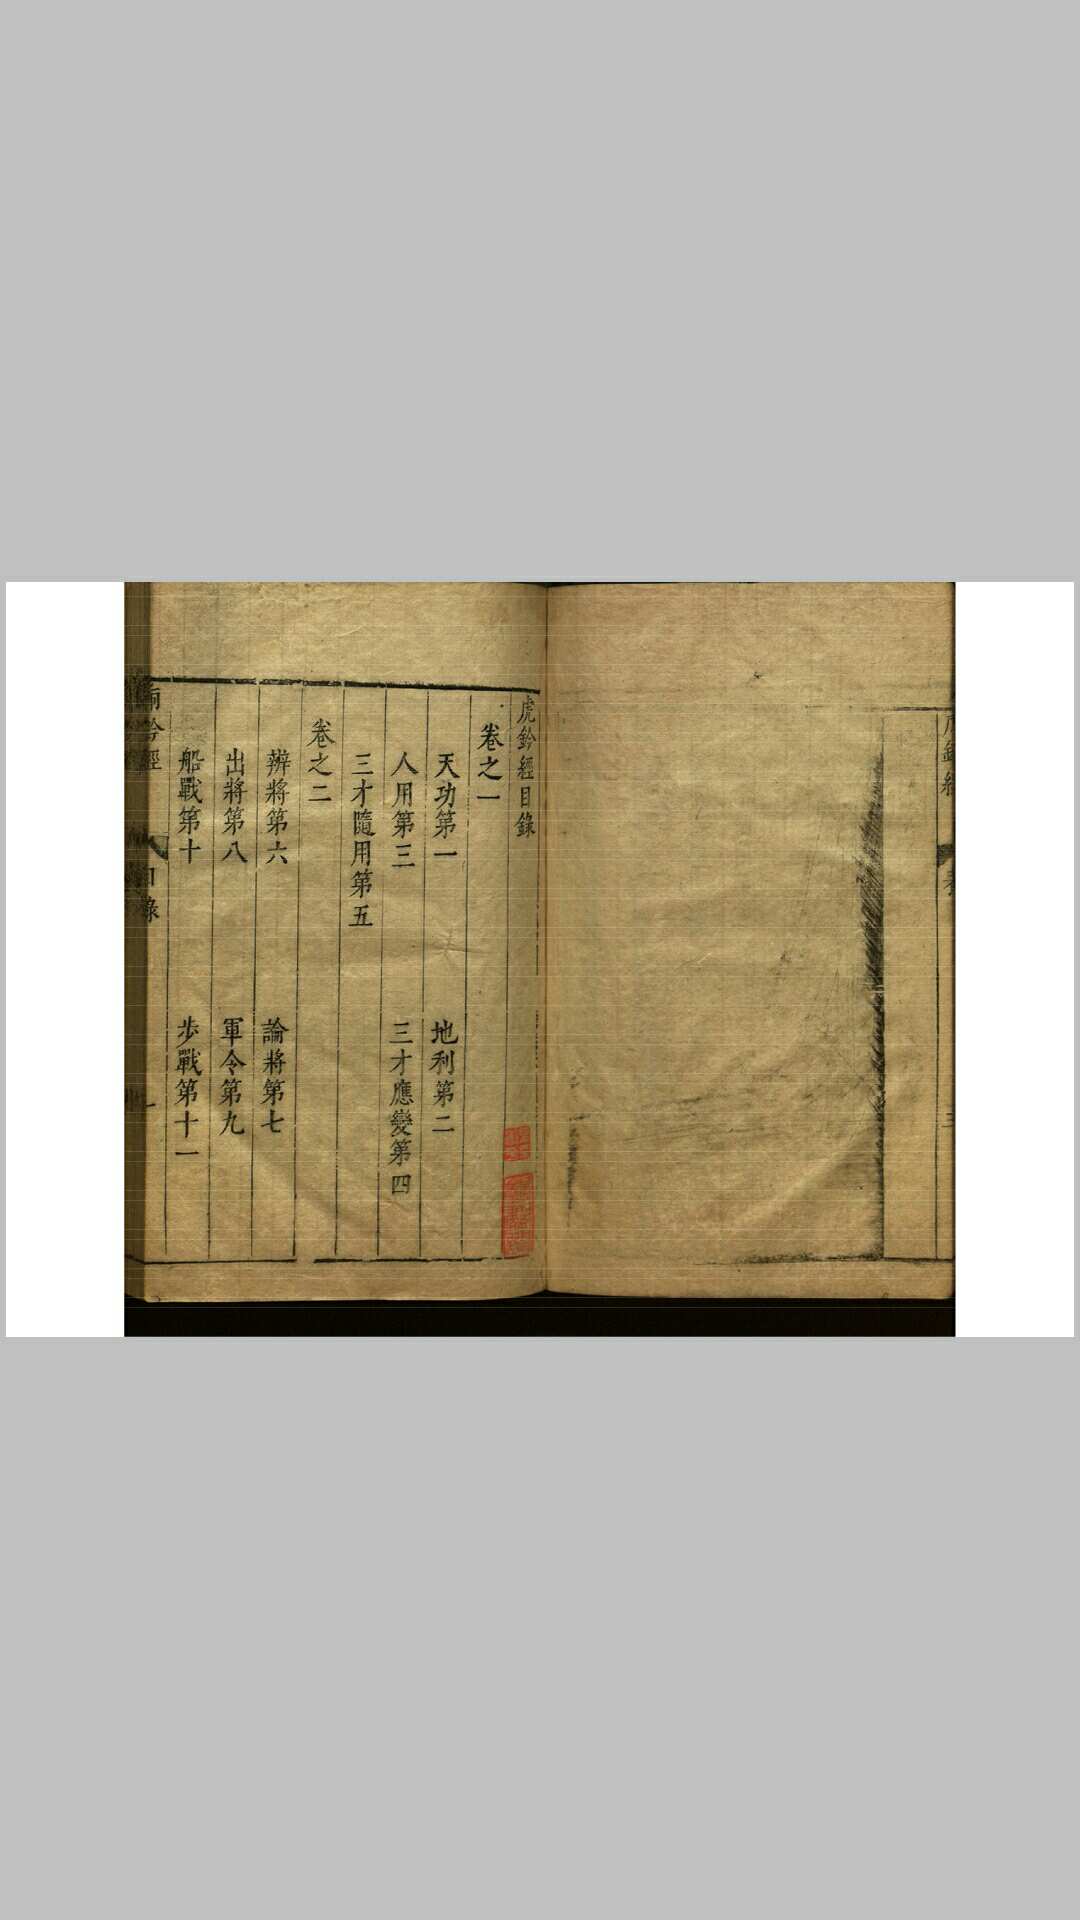 虎鈐經
表
三
虎鈐經目錄
卷之一
天功第一
地利第二
人用第三
三才應變第四
三才隨用第五
卷之二
辨將第六
論將第七
出將第八
軍令第九
船戰第十
步戰第十一
鈐經
目錄
一